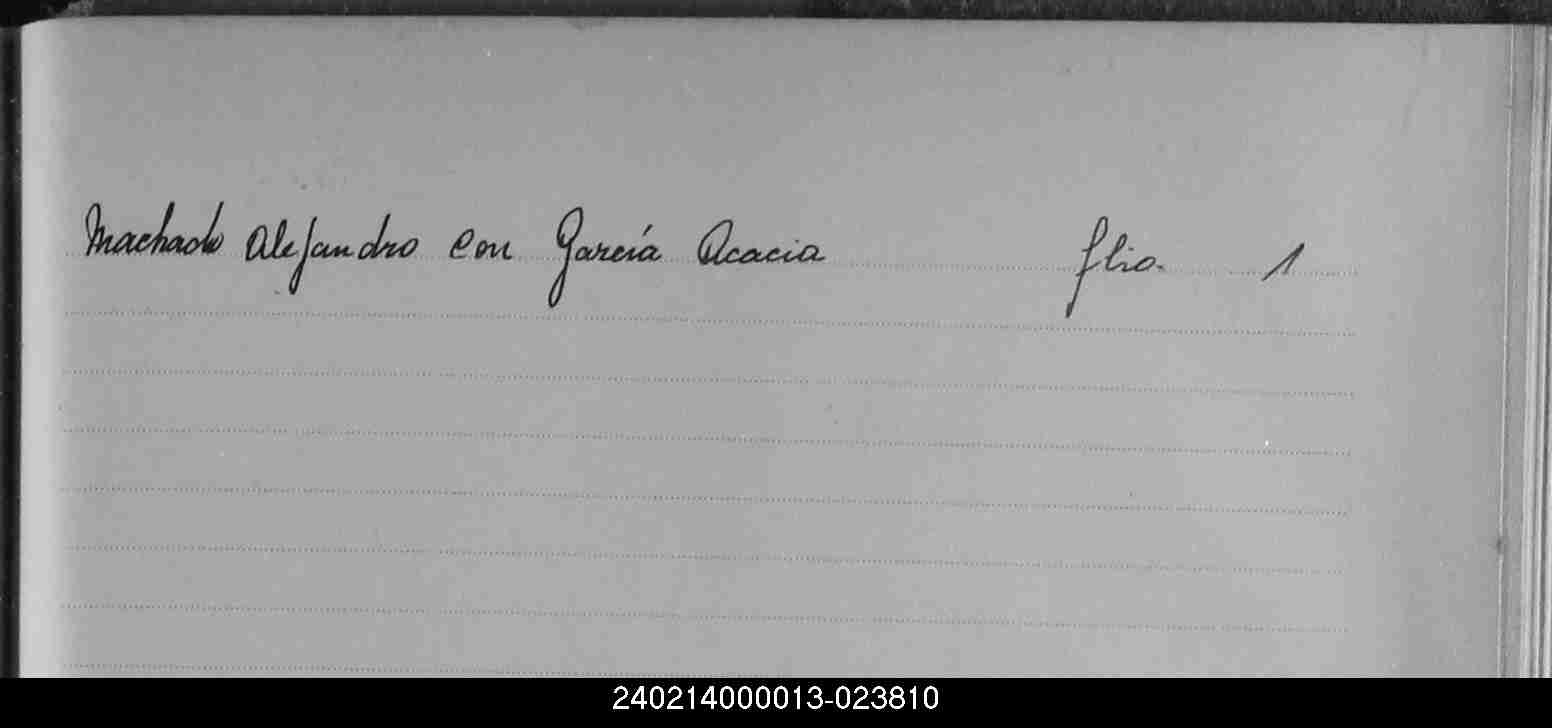 Machado Alejandro con García Acacia flio. 1
240214000013-023810